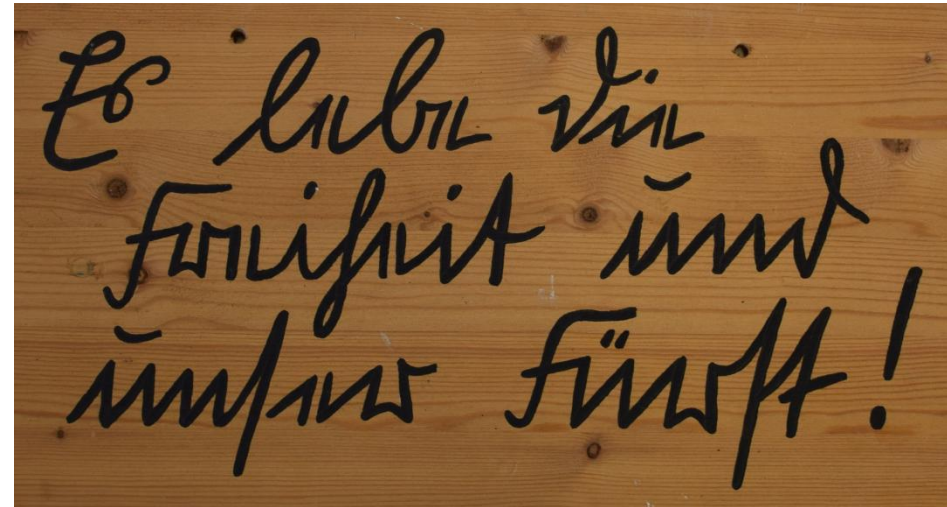 Es lebe die
Freiheit und
unser Fürst!